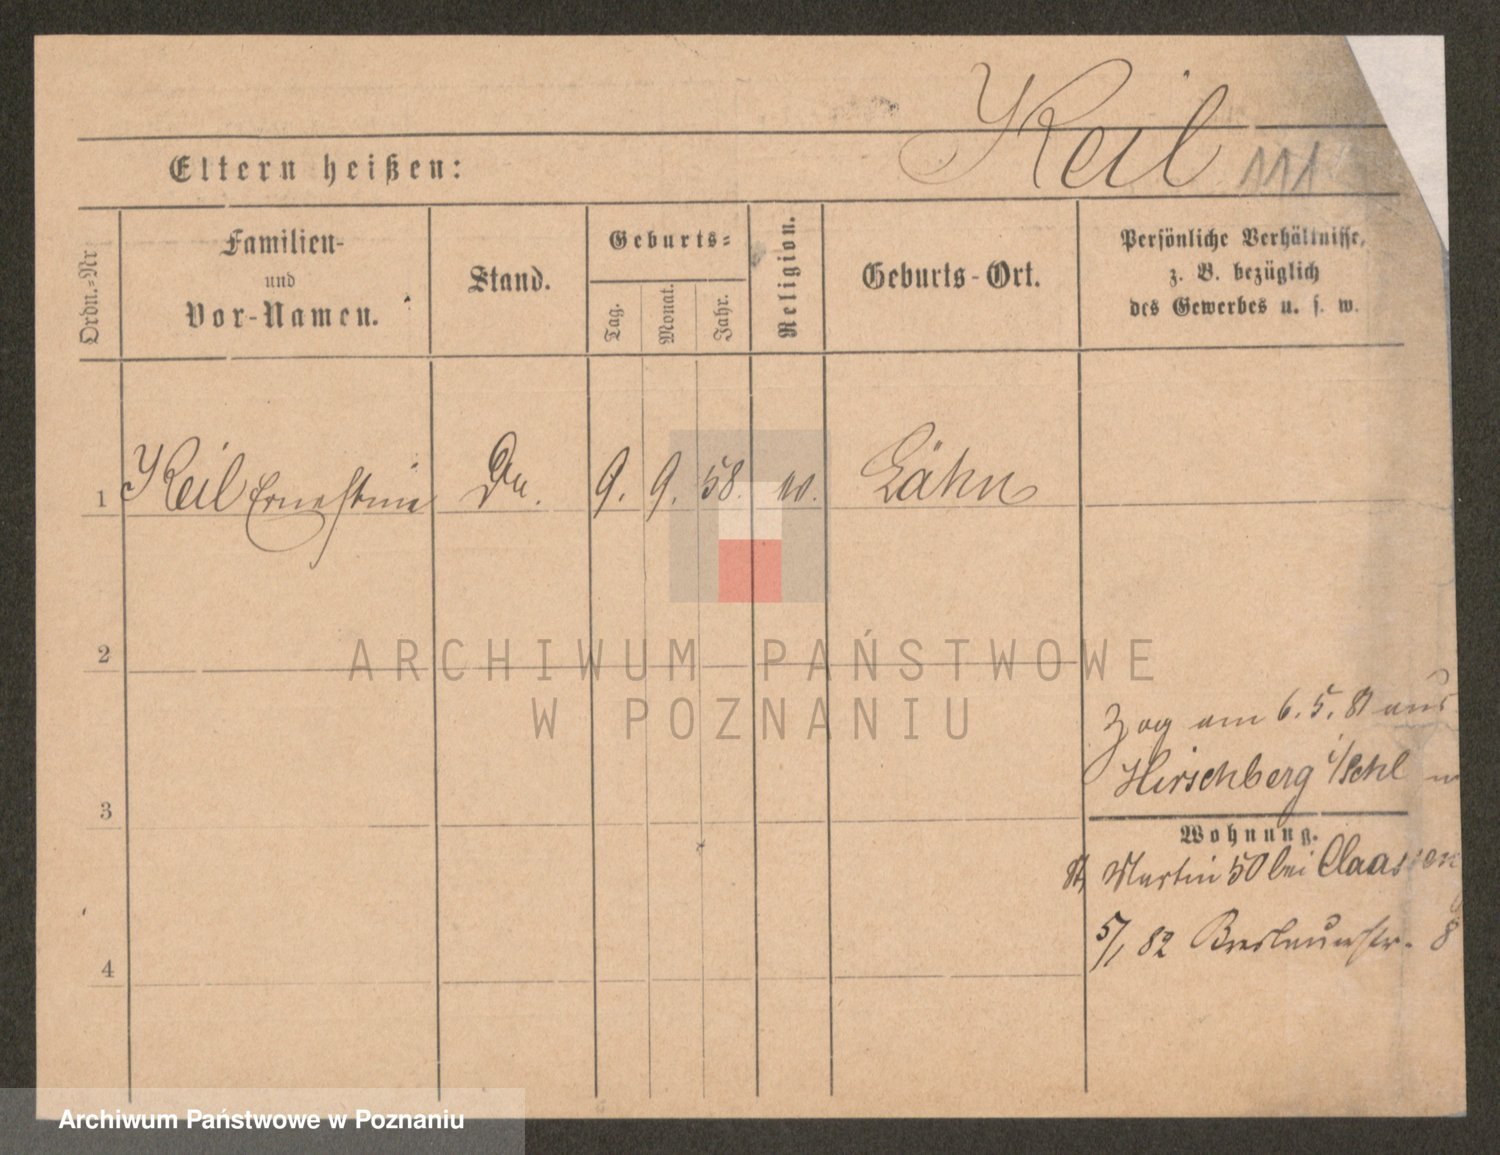 Keil 111
Eltern heißen:
Ordn.=Nr
Familien-
und
Vor-Namen.
Stand.
Geburts=
Tag.
Monat.
Jahr.
Religion.
Geburts-Ort.
Persönliche Verhältnisse,
z. B. bezüglich
des Gewerbes u. s. w.
1 Keil Ernestine 9. 9. 58. Lähn
2
Zog am 6. 5. 81 aus
Hirschberg i/Schl
3
Wohnung.
St Martin 50 bei Claassen
5/1 82 Breslauerstr. 8
4
ARCHIWUM PAŃSTWOWE
W POZNANIU
Archiwum Państwowe w Poznaniu